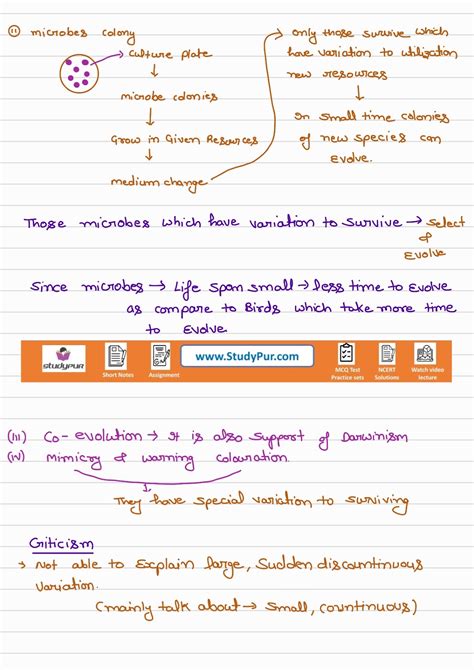 (ii) microbes colony
→ culture plate
↓
microbe colonies
↓
Grow in Given Resources
↓
medium change
→ only those survive which
have variation to utilization
new resources
↓
In small time colonies
of new species can
Evolve.
Those microbes which have variation to survive → select
&
Evolve
Since microbes → Life span small → less time to Evolve
as compare to Birds which take more time
to Evolve
studypur
Short Notes
Assignment
www.StudyPur.com
MCQ Test
Practice sets
NCERT
Solutions
Watch video
lecture
(iii) Co-evolution → It is also support of Darwinism
(iv) Mimicry & warning colouration.
↓
They have special variation to surviving
Criticism
→ Not able to Explain large, Sudden discountinuous
variation.
(mainly talk about → small, countinuous)